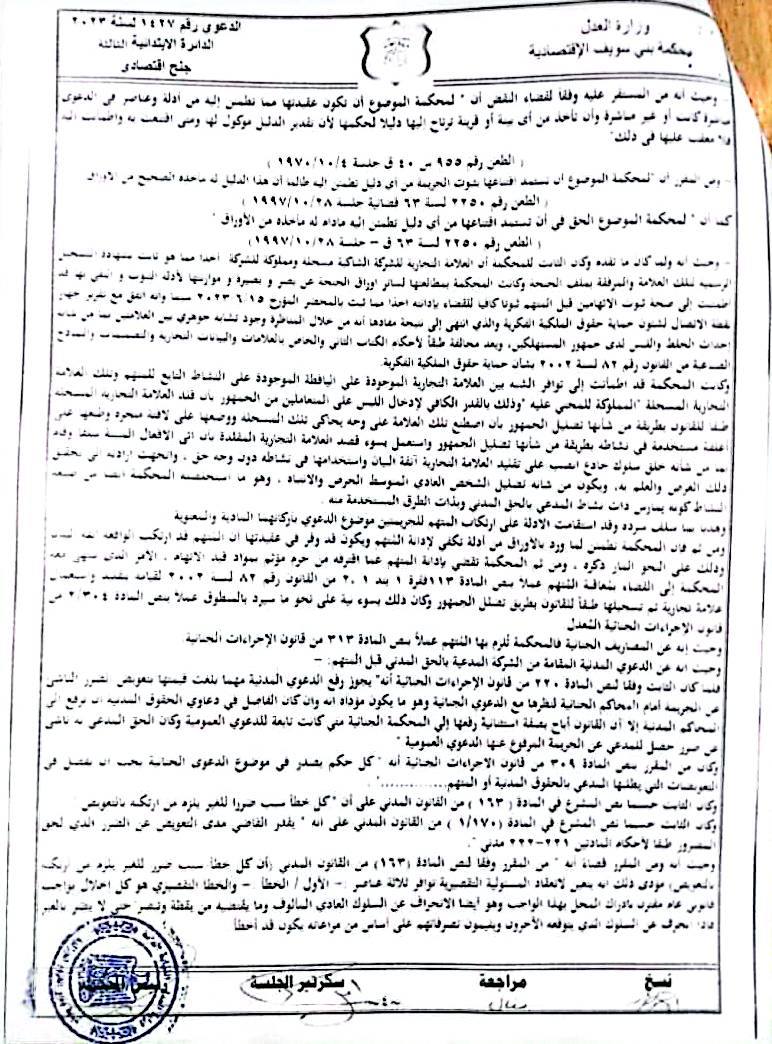 وزارة العدل
محكمة بني سويف الإقتصادية
الدعوى رقم ١٤٢٧ لسنة ٢٠٢٣
الدائرة الابتدائية الثالثة
جنح اقتصادى
- وحيث أنه من المستقر عليه وفقا لقضاء النقض أن " لمحكمة الموضوع أن تكون عقيدتها مما تطمئن إليه من أدلة وعناصر فى الدعوى
مباشرة كانت أو غير مباشرة وأن تأخذ من أى بينة أو قرينة ترتاح إليها دليلا لحكمها لأن تقدير الدليل موكول لها ومتى اقتنعت به واطمأنت اليه
فلا معقب عليها فى ذلك"
( الطعن رقم ٩٥٥ س ٤٠ ق جلسة ١٩٧٠/١٠/٤ )
- ومن المقرر أن "لمحكمة الموضوع ان تستمد اقتناعها بثبوت الجريمة من أى دليل تطمئن اليه طالما أن هذا الدليل له مأخذه الصحيح من الأوراق
( الطعن رقم ٢٢٥٠ لسنة ٦٣ قضائية جلسة ١٩٩٧/١٠/٢٨ )
كما أن " لمحكمة الموضوع الحق فى أن تستمد اقتناعها من أى دليل تطمئن إليه مادام له مأخذه من الأوراق "
( الطعن رقم ٢٢٥٠ لسنة ٦٣ ق – جلسة ١٩٩٧/١٠/٢٨ )
- وحيث أنه ولما كان ما تقدم وكان الثابت للمحكمة أن العلامة التجارية للشركة الشاكية مسجلة ومملوكة للشركة أخذا مما هو ثابت بشهادة التسجيل
الرسمية لتلك العلامة والمرفقة بملف الجنحة وكانت المحكمة بمطالعتها لسائر اوراق الجنحة عن بصر و بصيرة و موازنتها لأدلة الثبوت و النفى بها قد
اطمئنت إلى صحة ثبوت الاتهامين قبل المتهم ثبوتا كافيا للقضاء بإدانته اخذا مما ثبت بالمحضر المؤرخ ٢٠٢٣/٦/١٥ سيما وانه اتفق مع تقرير جهاز
نقطة الاتصال لشئون حماية حقوق الملكية الفكرية والذي انتهى إلى نتيجة مفادها أنه من خلال المناظرة وجود تشابه جوهري بين العلامتين مما من شانه
إحداث الخلط واللبس لدى جمهور المستهلكين، ويعد مخالفة طبقاً لأحكام الكتاب الثاني والخاص بالعلامات والبيانات التجارية والتصميمات والنماذج
الصناعية من القانون رقم ٨٢ لسنة ٢٠٠٢ بشأن حماية حقوق الملكية الفكرية.
وكانت المحكمة قد اطمأنت إلى توافر الشبه بين العلامة التجارية الموجودة على اليافطة الموجودة على النشاط التابع للمتهم وتلك العلامة
التجارية المسجلة "المملوكة للمجني عليه "وذلك بالقدر الكافي لإدخال اللبس على المتعاملين من الجمهور بأن قلد العلامة التجارية المسجلة
طبقا للقانون بطريقة من شأنها تضليل الجمهور بأن اصطنع تلك العلامة على وجه يحاكى تلك المسجلة ووضعها على لافتة متجره وضعها على
أغلفة مستخدمة فى نشاطه بطريقة من شأنها تضليل الجمهور واستعمل بسوء قصد العلامة التجارية المقلدة بأن اتى الافعال المبينة سلفا وقام
بما من شأنه خلق سلوك خادع انصب على تقليد العلامة التجارية آنفة البيان واستخدامها في نشاطه دون وجه حق ، واتجهت إرادته الي تحقيق
ذلك الغرض والعلم به، ويكون من شأنه تضليل الشخص العادي المتوسط الحرص والانتباه ، وهو ما استخلصته المحكمة أيضا من طبيعة
النشاط كونه يمارس ذات نشاط المدعي بالحق المدني وبذات الطرق المستخدمة منه .
وهديا بما سلف سرده وقد استقامت الادلة على ارتكاب المتهم للجريمتين موضوع الدعوي بأركانهما المادية والمعنوية
ومن ثم فان المحكمة تطمئن لما ورد بالاوراق من أدلة تكفي لإدانة المتهم ويكون قد وقر في عقيدتها ان المتهم قد ارتكب الواقعة
وذلك على النحو المار ذكره ، ومن ثم المحكمة تقضي بإدانة المتهم عما اقترفه من جرم مؤثم بمواد قيد الاتهام ، الامر الذي تنتهي معه
المحكمة إلى القضاء بمعاقبة المتهم عملاً بنص المادة ١١٣فقرة ١ بند ١، ٢ من القانون رقم ٨٢ لسنة ٢٠٠٢ لقيامه بتقليد واستعمال
علامة تجارية تم تسجيلها طبقاً للقانون بطريق تضلل الجمهور وكان ذلك بسوء نية على نحو ما سيرد بالمنطوق عملاً بنص المادة ٢/٣٠٤ من
قانون الإجراءات الجنائية المُعدل
وحيث إنه عن المصاريف الجنائية فالمحكمة تُلزم بها المُتهم عملاً بنص المادة ٣١٣ من قانون الإجراءات الجنائية
وحيث انه عن الدعوي المدنية المقامة من الشركة المدعية بالحق المدني قبل المتهم: –
فلما كان الثابت وفقا لنص المادة ٢٢٠ من قانون الإجراءات الجنائية أنه" يجوز رفع الدعوي المدنية مهما بلغت قيمتها بتعويض الضرر الناشئ
عن الجريمة أمام المحاكم الجنائية لنظرها مع الدعوي الجنائية وهو ما يكون مؤداه انه وان كان الفاصل في دعاوي الحقوق المدنية أن ترفع الي
المحاكم المدنية إلا أن القانون أباح بصفة استثنائية رفعها إلي المحكمة الجنائية متي كانت تابعة للدعوي العمومية وكان الحق المدعي به ناشئ
عن ضرر حصل للمدعي عن الجريمة المرفوع عنها الدعوي العمومية "
وكان من المقرر بنص المادة ٣٠٩ من قانون الاجراءات الجنائية أنه " كل حكم يصدر في موضوع الدعوى الجنائية يجب ان يفصل في
التعويضات التي يطلبها المدعي بالحقوق المدنية أو المتهم.............." .
وكان الثابت حسبما نص المشرع في المادة (١٦٣ ) من القانون المدني على أن " كل خطأ سبب ضررا للغير يلزم من ارتكبه بالتعويض"
وكان الثابت حسبما نص المشرع في المادة (١/١٧٠) من القانون المدني على أنه " يقدر القاضي مدى التعويض عن الضرر الذي لحق
المضرور طبقا لأحكام المادتين ٢٢١–٢٢٢ مدني".
وحيث أنه ومن المقرر قضاءً أنه " من المقرر وفقا لنص المادة (١٦٣) من القانون المدني (أن كل خطأ سبب ضرر للغير يلزم من ارتكبه
بالتعويض) مؤدى ذلك انه يتعين لانعقاد المسئولية التقصيرية توافر ثلاثة عناصر :- الأول / الخطأ :- والخطأ التقصيري هو كل اخلال بواجب
قانوني عام مقترن بادراك المخل بهذا الواجب وهو أيضا الانحراف عن السلوك العادي المألوف وما يقتضيه من يقظة وتبصر حتى لا يضر بالغير
فاذا انحرف عن السلوك الذي يتوقعه الآخرون ويقيمون تصرفاتهم على أساس من مراعاته يكون قد أخطأ
نسخ
مراجعة
سكرتير الجلسة
رئيس المحكمة